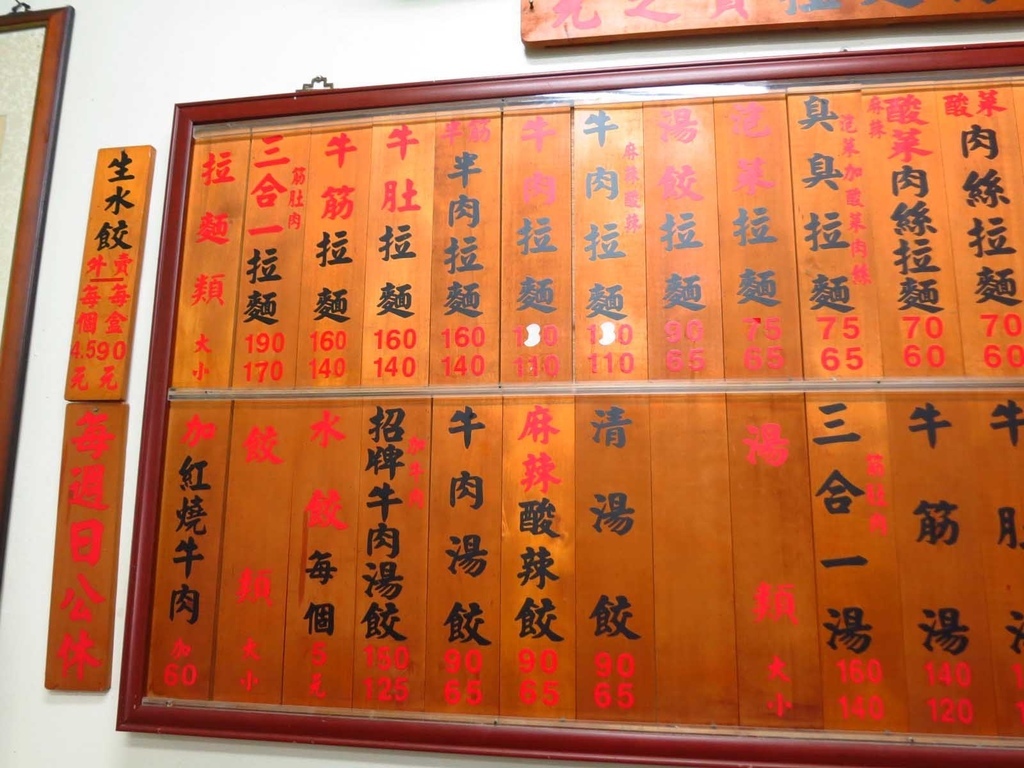 元之寶拉麵
生水餃
生一每個4.5元
賣每盒90元
每週日公休
拉麵類 大 小
三合一拉麵 筋肚肉 190 170
牛筋拉麵 160 140
牛肚拉麵 160 140
半筋半肉拉麵 160 140
牛肉拉麵 110
牛肉拉麵 麻辣酸辣 110
湯餃拉麵 90 65
泡菜拉麵 75 65
臭臭拉麵 泡菜加酸菜肉絲 75 65
麻辣酸菜肉絲拉麵 70 60
酸菜肉絲拉麵 70 60
加紅燒牛肉 加60
餃類 大 小
水餃每個5元
招牌牛肉湯餃 加牛肉 150 125
牛肉湯餃 90 65
麻辣酸辣餃 90 65
清湯餃 90 65
湯類 大 小
三合一湯 筋肚肉 160 140
牛筋湯 140 120
牛